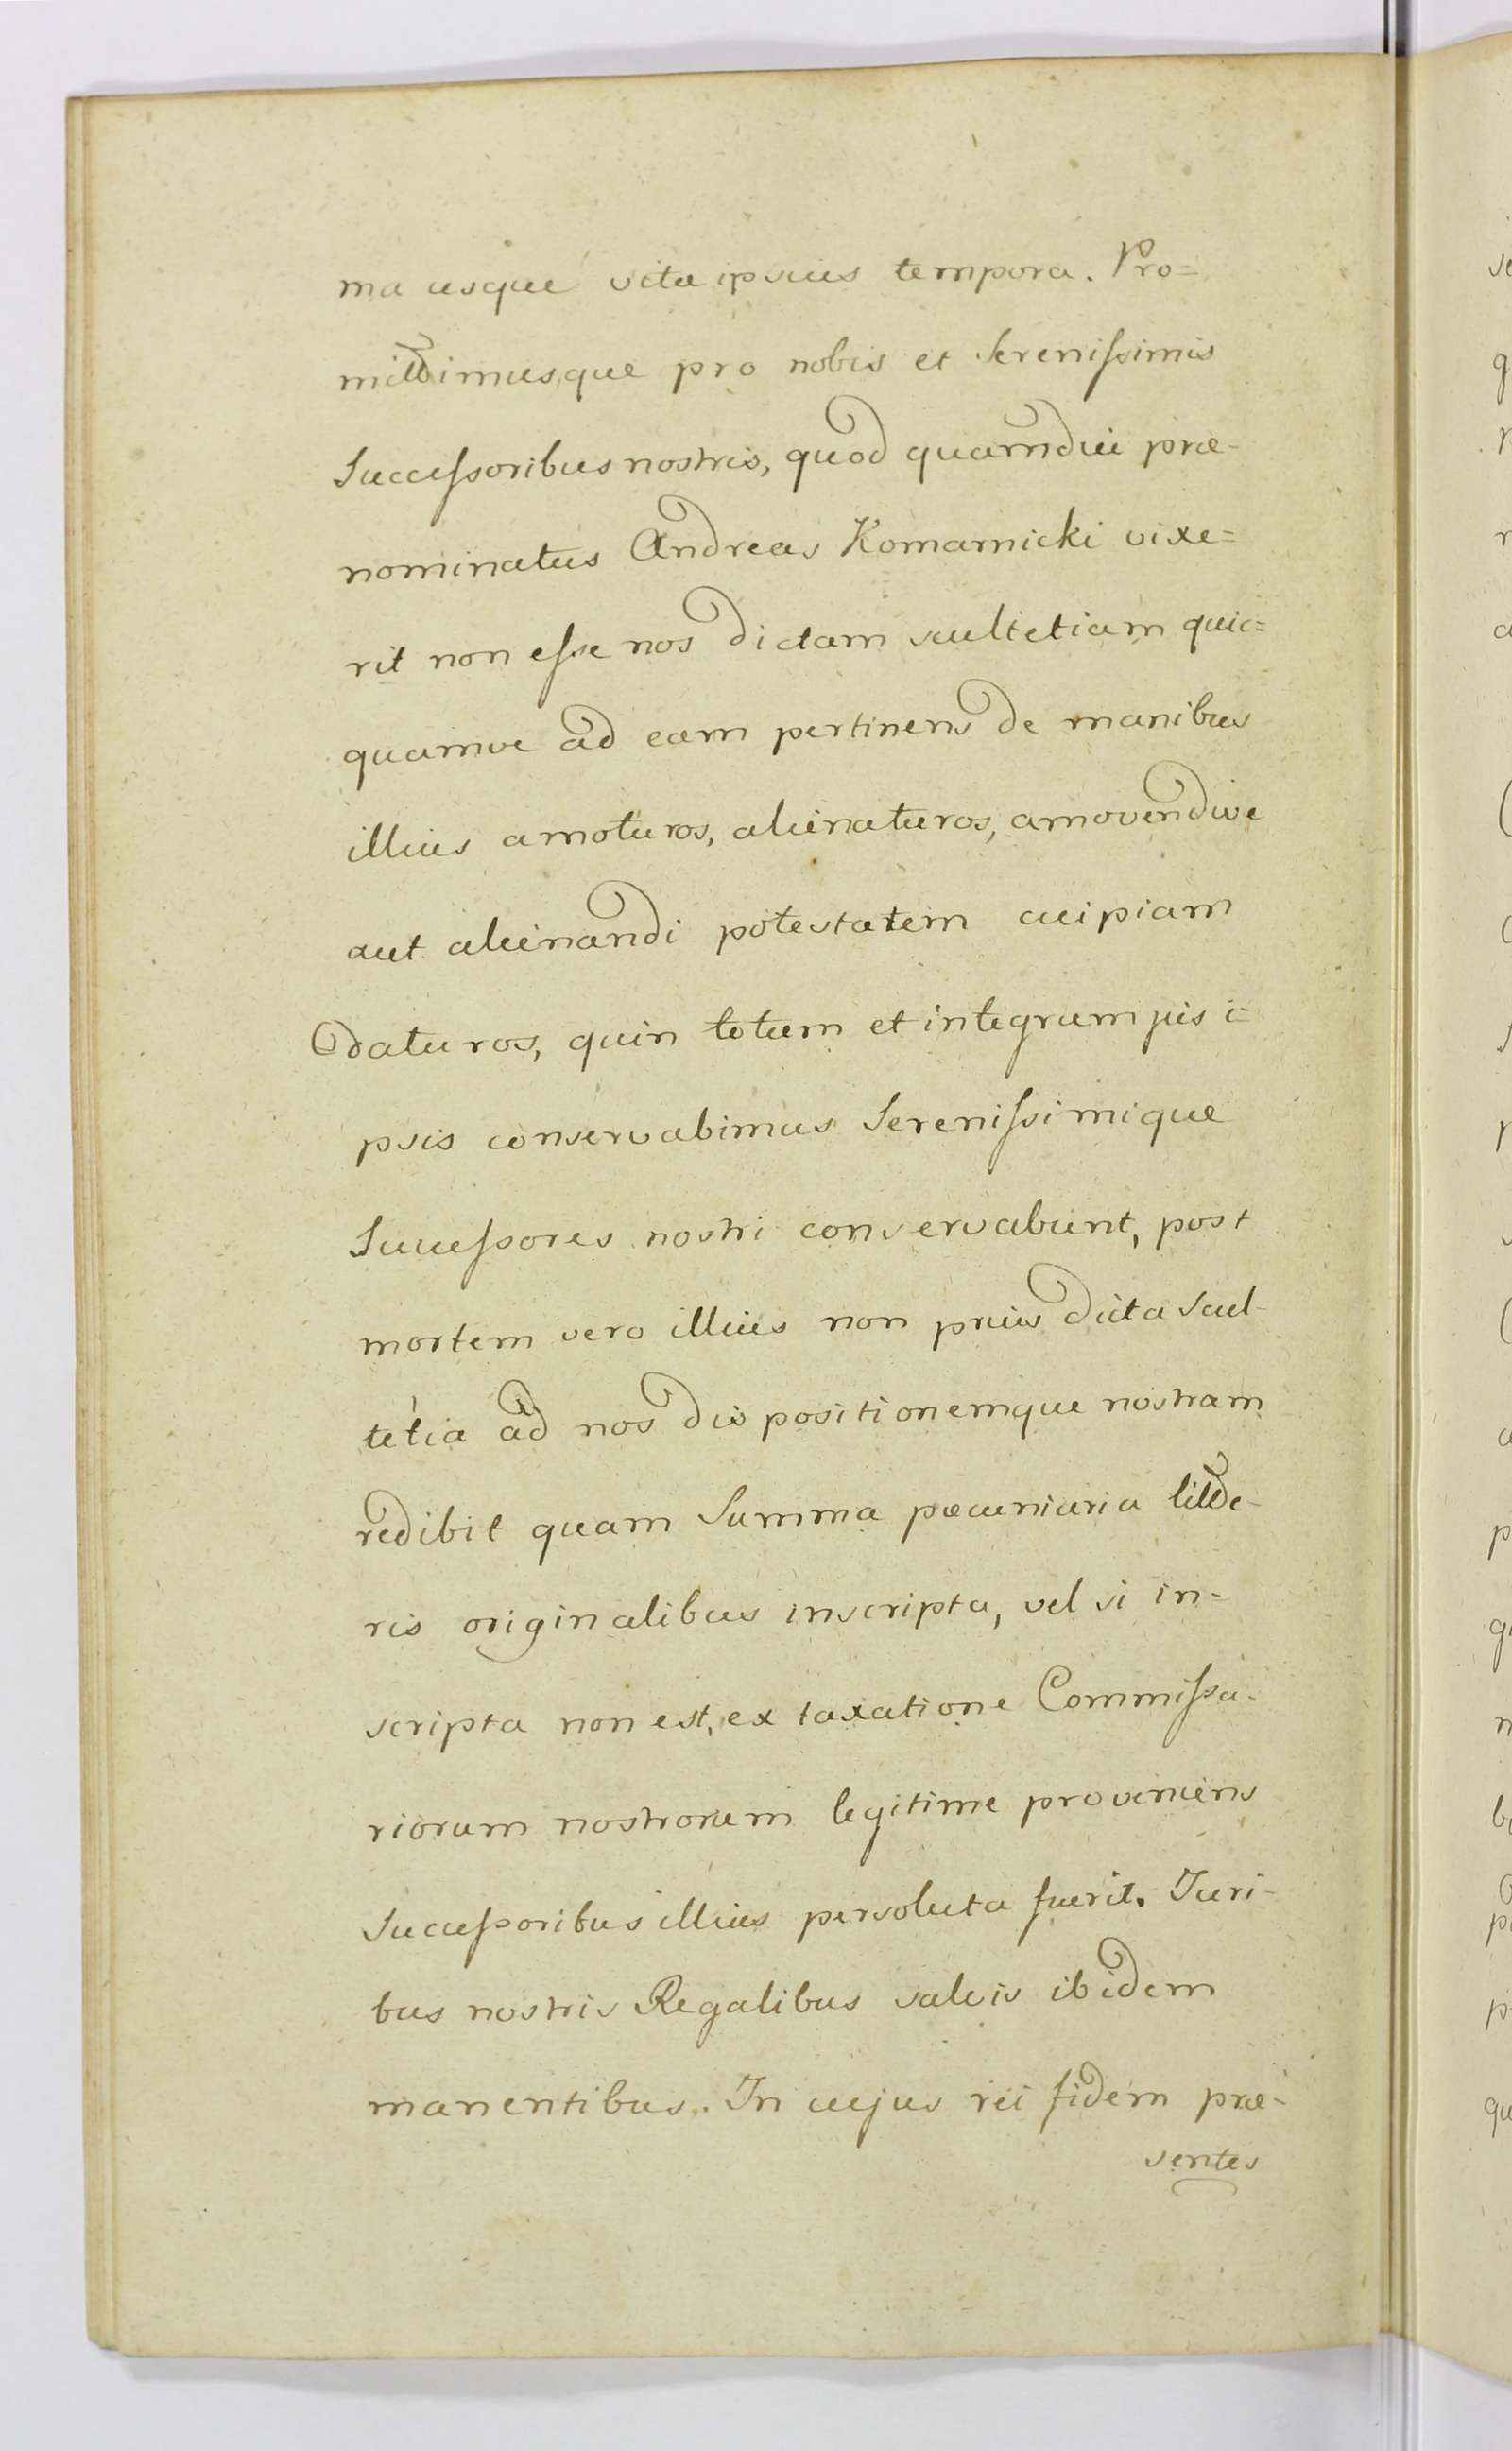 ma usque vitæ ipsius tempora. Pro=
mittimusque pro nobis et Serenissimis
Successoribus nostris, quod quamdiu præ-
nominatus Andreas Komarnicki vixe=
rit non esse nos dictam scultetiam quic=
quamve ad eam pertinens de manibus
illius amoturos, alienaturos, amovendive
aut alienandi potestatem cuipiam
daturos, quin totum et integrum jus i=
psis conservabimus Serenissimique
Successores nostri conservabunt, post
mortem vero illius non prius dicta scul-
tetia ad nos dispositionemque nostram
redibit quam Summa pæcuniaria litte-
ris originalibus inscripta, vel si in-
scripta non est, ex taxatione Commissa-
riorum nostrorum legitime proveniens
Successoribus illius persoluta fuerit. Juri-
bus nostris Regalibus salvis ibidem
manentibus. In cujus rei fidem præ-
sentes